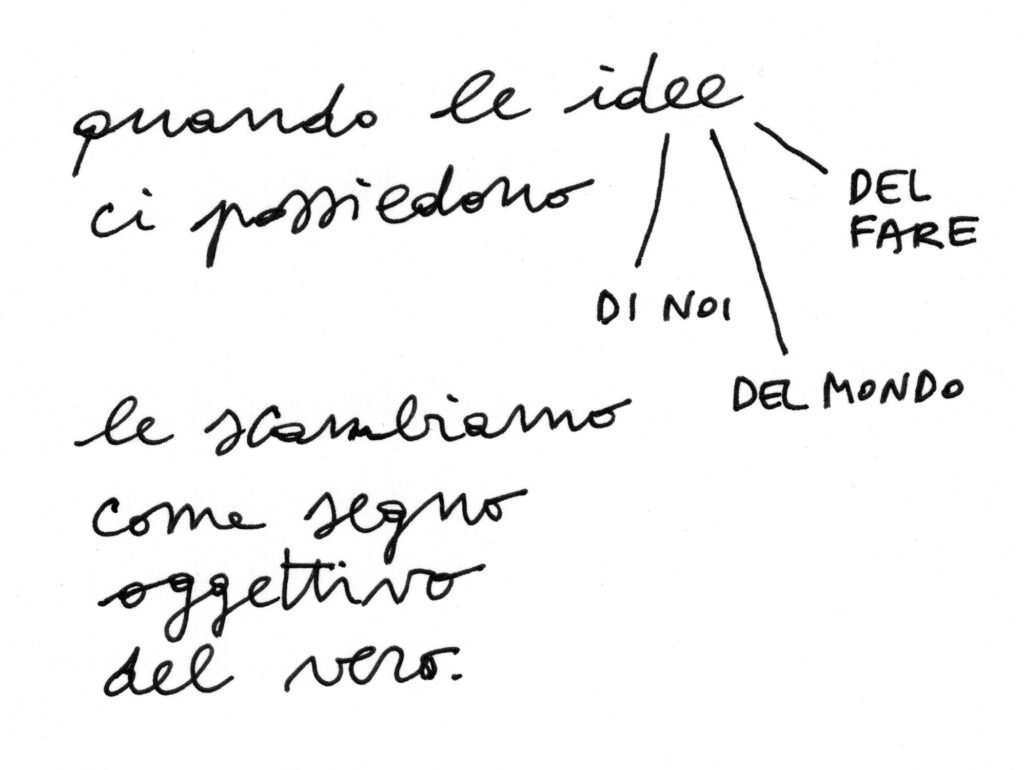 quando le idee
ci possiedono
DEL
FARE
DI NOI
DEL MONDO
le scambiamo
come segno
oggettivo
del vero.